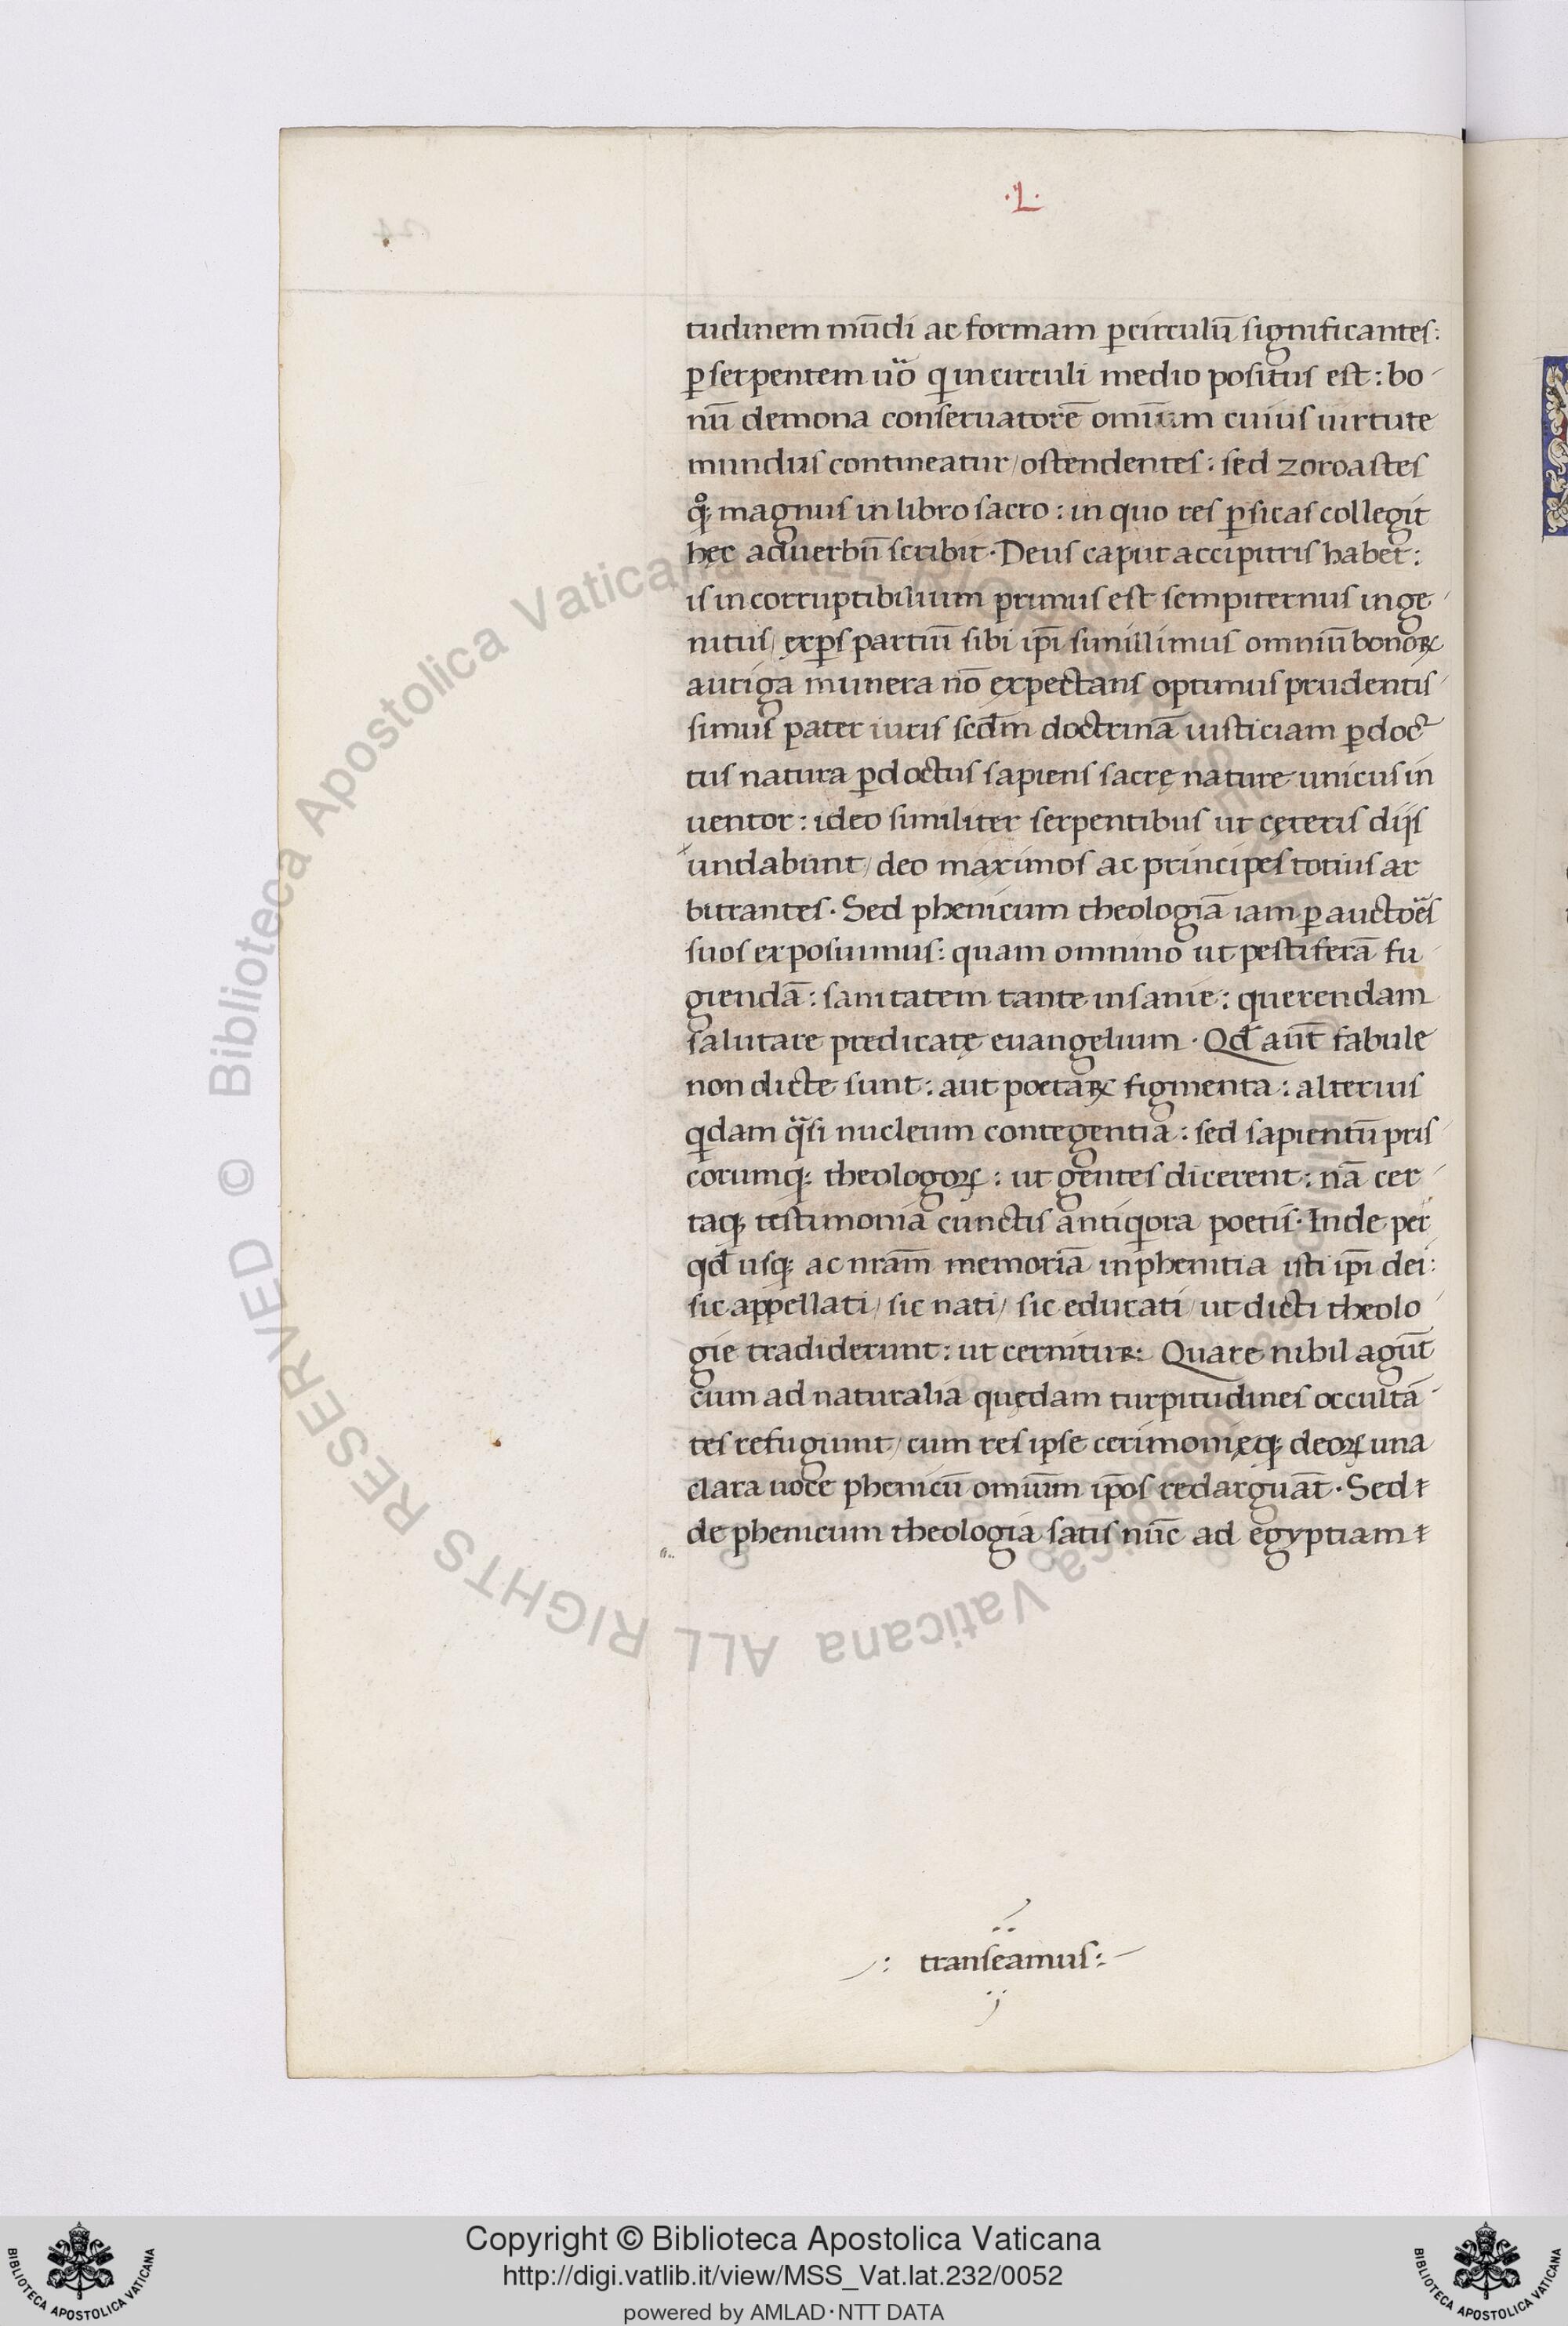 ·L·
tudinem mūdi ac formam ꝑcirculū significantes:
ꝑserpentem uo̊ qͥ in circuli medio positus est: bo-
nū demona conseruatorē omīum cuius uirtute
mundus contineatur/ostendentes: sed zoroastes
qͦꝫ magnus in libro sacro: in quo res ꝑsicas collegit
hęc aduerbū scribit·Deus caput accipitris habet:
is incorruptibilium primus est sempiternus inge-
nitus/ exꝑs partiū sibi ip̄i simillimus omniū bonoꝝ
auriga munera nō expectans optimus prudentis-
simus pater iuris scd̄m doctrinā iusticiam ꝑdoc-
tus natura ꝑdoctus sapiens sacrę nature unicus in
uentor: ideo similiter serpentibus ut cęteris dijs
iundabunt/ deo maximos ac principes totius ar
bitrantes· Sed phenicum theologiā iam ꝑ auctoēs
suos exposuimus: quam omnino ut pestiferā fu-
giendā: sanitatem tante insanie: querendam
salutare predicatę euangelium · Qd̄ aūt fabule
non dicte sunt: aut poetaꝝ figmenta: alterius
qͥdam qͣsi nucleum contegentia: sed sapientū pris-
corumqꝫ theologoꝝ: ut gentes dicerent: nā cer-
taqꝫ testimonia cunctis antiqͥora poetis· Inde per
qd̄ usqꝫ ac nr̄am memoriā inphenitia isti ip̄i dei:
sic appellati/ sic nati/ sic educati/ ut dicti theolo-
gie tradiderunt: ut cernitur: Quare nihil agūt
cum ad naturalia quędam turpitudines occultā-
tes refugiunt/ cum res ipse cerimonięqꝫ deoꝝ una
clara uoce phenicū omiūm ip̄os redarguāt· Sed ꝉ
de phenicum theologia satis nūc ad egyptiam ꝉ
: transeamus:-
Copyright © Biblioteca Apostolica Vaticana
http://digi.vatlib.it/view/MSS_Vat.lat.232/0052
powered by AMLAD·NTT DATA
BIBLIOTECA APOSTOLICA VATICANA
BIBLIOTECA APOSTOLICA VATICANA
© Biblioteca Apostolica Vaticana ALL RIGHTS RESERVED